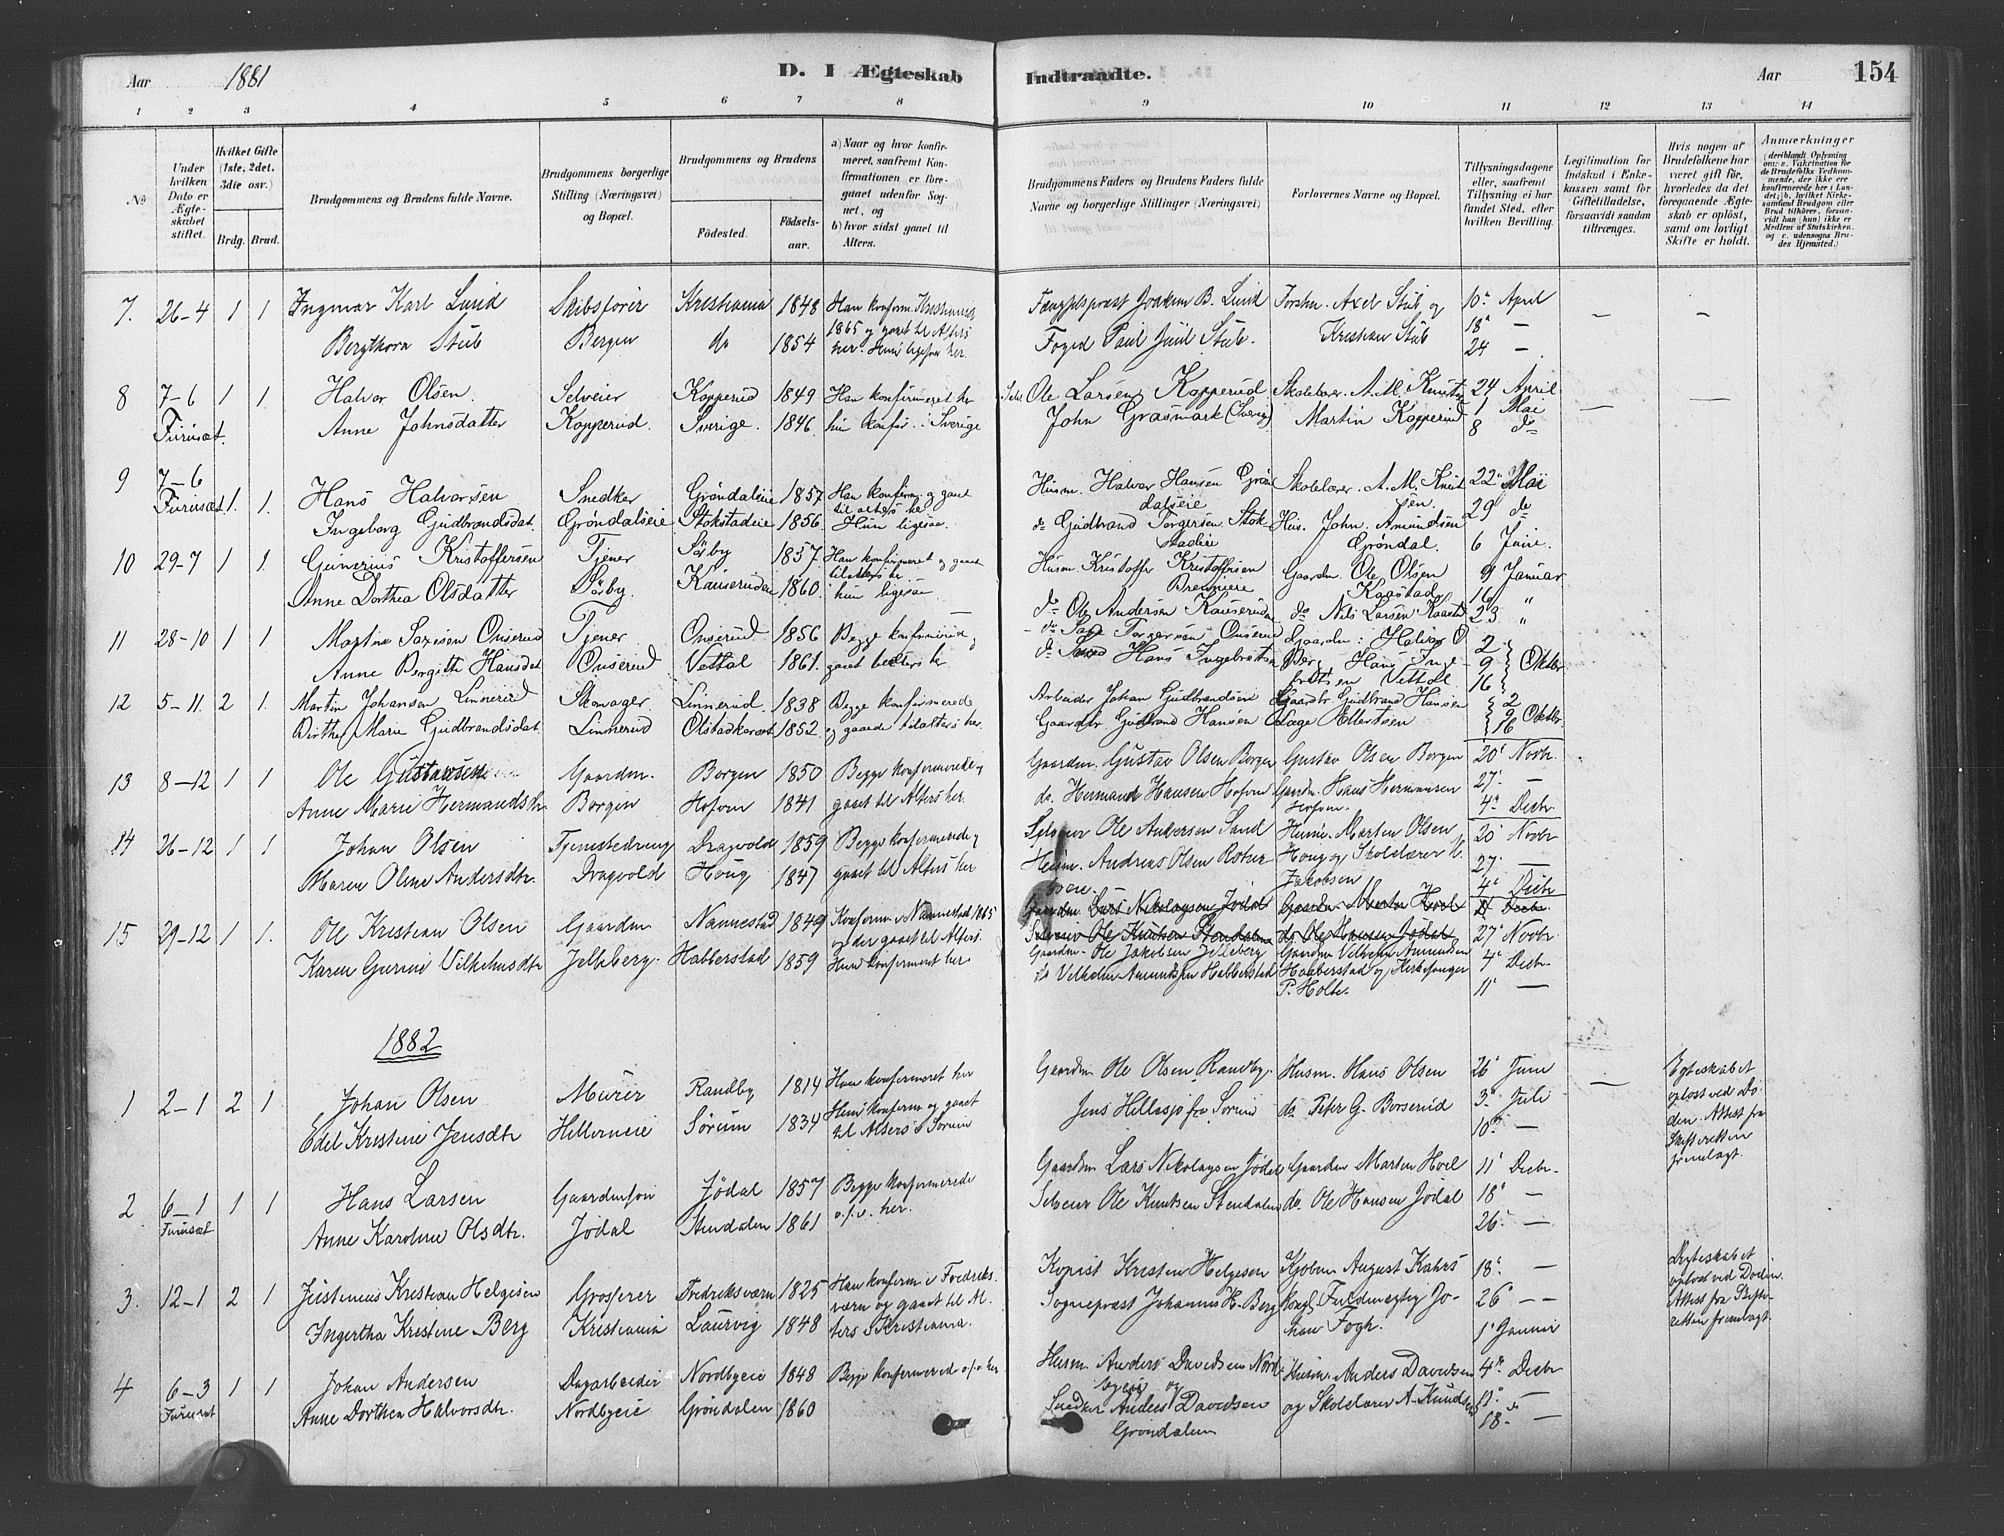 Aar 1881 D. I Ægteskab Indtraadte. Aar 154
1 2 3 4 5 6 7 8 9 10 11 12 13 14
No
Under hvilken Dato er Ægteskabet stiftet.
Hvilket Gifte (1ste, 2det, 3die osv.)
Brdg. Brud.
Brudgommens og Brudens fulde Navne.
Brudgommens borgerlige Stilling (Næringsvei) og Bopæl.
Brudgommens og Brudens
Fødested. Fødselsaar.
a) Naar og hvor konfirmeret, saafremt Konfirmationen er foregaaet udenfor Sognet, og
b) hvor sidst gaaet til Alters.
Brudgommens Faders og Brudens Faders fulde Navne og borgerlige Stillinger (Næringsvei)
Forlovernes Navne og Bopæl.
Tillysningsdagene eller, saafremt Tillysning ei har fundet Sted, efter hvilken Bevilling.
Legitimation for Indskud i Enkekassen samt for Giftetilladelse, forsaavidt saadan tiltrænges.
Hvis nogen af Brudefolkene har været gift før, hvorledes da det foregaaende Ægteskab er opløst, samt om lovligt Skifte er holdt.
Anmærkninger
7. 26-4 1 1 Ingmar Karl Lund Skibsfører Kristiania 1848 Han konfirm. Kristiania
1865 og gaaet til Alters
Bergthora Stub Bergen do 1854 her. Hun ligesaa her.
Fængselspræst Joakim B. Lund Torsten. Axel Stub og 10 April
Foged Paul Juul Stub. Kristian Stub 18 —
24 —
8 7-6 1 1. Halvor Olsen Selveier Kopperud 1849 Han konfirmeret her
Furuset. Anne Johnsdatter Kopperud. Sverige. 1846. hun konfir. i Sverige
Ole Larsen Kopperud Skolelærer A. M. Knutsen 24 April
John Grasmark (Sverig) Martin Kopperud 1 Mai
8 do
9 7-6
Furuset 1. 1. Hans Halvorsen Snedker Grøndaleie 1857 Han konfirm. og gaaet
til alters her
Ingeborg Gudbrandsdat. Grøndalseie Stokstadeie 1856. Hun ligesaa.
Husm. Halvor Hansen Grøndalseie Skolelærer. A. M. Knutsen 22 Mai
do Gudbrand Torgersen Stokstadeie Hus. John Amundsen Grøndal. 29 do
6 Juni.
10 29-7 1 1. Gunerius Kristoffersen Tjener Sörby 1857 Han konfirmeret og gaaet
til alters her
Anne Dorthea Olsdatter Sörby. Kauserudeie 1860. hun ligesaa
Husm Kristoffer Kristoffersen Brenneie Gaardm. Ole Olsen Kaastad 9 Januar
16 "
do Ole Andersen Kauserud do Nils Larsen Kaastad 23. "
11 28-10 1 1 Martin Onserud Tjener Onserud 1856 Begge konfirmired og
Anne Bergitte Hansdat Onserud Vettal 1861. gaaet til alters her
Torgersen Onserud Gaardm: Halvor O. Berg 2
do Hans Ingebretsen Hans Ingebretsen Vettal 9 Oktbr
16
12 5-11. 2 1. Martin Johansen Linnerud Skomager Linnerud. 1838 Begge konfirmerede
Birthe Marie Gudbrandsdat. Linnerud Olstadkarset 1852. og gaaede til alters her.
Arbeider Johan Gudbrandsen Gaardbr Gudbrand Hansen 2
Gaardbr Gudbrand Hansen Aage Ellertsen 9 Oktbr
16
13 8-12 1 1 Ole Gustavsen Gaardm. Borgen 1850 Begge konfirmerede og
Anne Marie Hermandsdtr Borgen Hofven 1841 gaaet til Alters her.
Gaardm. Gustav Olsen Borgen Gustav Olsen Borgen 20 Novbr.
do. Hermand Hansen Hofven Gaardm. Hans Hermansen Hofven. 27 —
4 Decbr.
14 26-12 1 1 Johan Olsen Tjenestedreng Dragvold 1859 Begge konfirmerede og
Maren Oline Andersdtr. Dragvold Houg 1847 gaaet til Alters her
Selveier Ole Andersen Sand Husm. Marten Olsen 20 Novbr
Husm. Andreas Olsen Houg og Skolelærer H. Jakobsen 27 —
4 Decbr
Gaardm. Lars Nikolaysen Jødal Gaardm. Morten Hoel Decbr.
15 29-12 1 1. Ole Kristian Olsen Gaardm Nannestad 1849 Konfirm. i Nannestad 1865
og der gaaet til Alters.
Karen Gurine Vilhelmsdtr Jelleberg. Habberstad 1859 Hun konfirmeret her
Selveier Ole Knutsen Stendalen do Ole Hansen Jødal 27 Novbr
Gaardm. Ole Jakobsen Jelleberg Gaardm Vilhelm Amundsen 4 Decbr
do Vilhelm Amundsen Habberstad Habberstad og Kirkesanger P. Holte. 11 —
1882
1 2-1 2 1. Johan Olsen Murer Randby 1814 Han konfirmeret her
Edel Kristine Jensdtr Hellerneie Sørum 1834 Hun konfirm og gaaet
til Alters i Sørum
Gaardm Ole Olsen Randby. Husm. Hans Olsen 26 Juni
Jens Hillesjø fra Sorum do Peter G. Borserud 3 Juli
10 —
Egteskabet opløst ved Døden. Attest fra Skifteretten fremlagt.
2. 6-1 1 1 Hans Larsen Gaardmsøn Jødal 1857 Begge konfirmerede
Furuset Anne Karoline Olsdtr. Jødal Stendalen 1861 o.s.v. her.
Gaardm Lars Nikolaysen Jødal Gaardm Marten Hoel 11 Decbr
Selveier Ole Knutsen Stendalen do. Ole Hansen Jødal 18 —
26 —
3. 12-1 2 1 Justinius Kristian Helgesen Grosserer Fredriksværn 1825 Han konfirm i Fredriksværn
og gaaet til Alters i Kristiania.
Ingertha Kristine Berg Kristiania Laurvig 1848
Kopist Kristen Helgesen Kjøbm August Kahrs 18 —
Sogneprest Johannes H. Berg Johan Fogh. 26 —
1 Januar
Egteskabet opløst ved Døden. Attest fra Skifteretten fremlagt.
4 6-3 1 1 Johan Andersen Dagarbeider Nordbyeie 1848 Begge konfirmered o.s.v. her
Furuset Anne Dorthea Halvorsdtr. Nordbyeie Grøndalen 1860
Husm Anders Davidsen Nordbyeie og Husm. Anders Davidsen 4 Decbr
Snedker Anders Davidsen Grøndalen og Skolelærer A. Knudsen 11
18 —